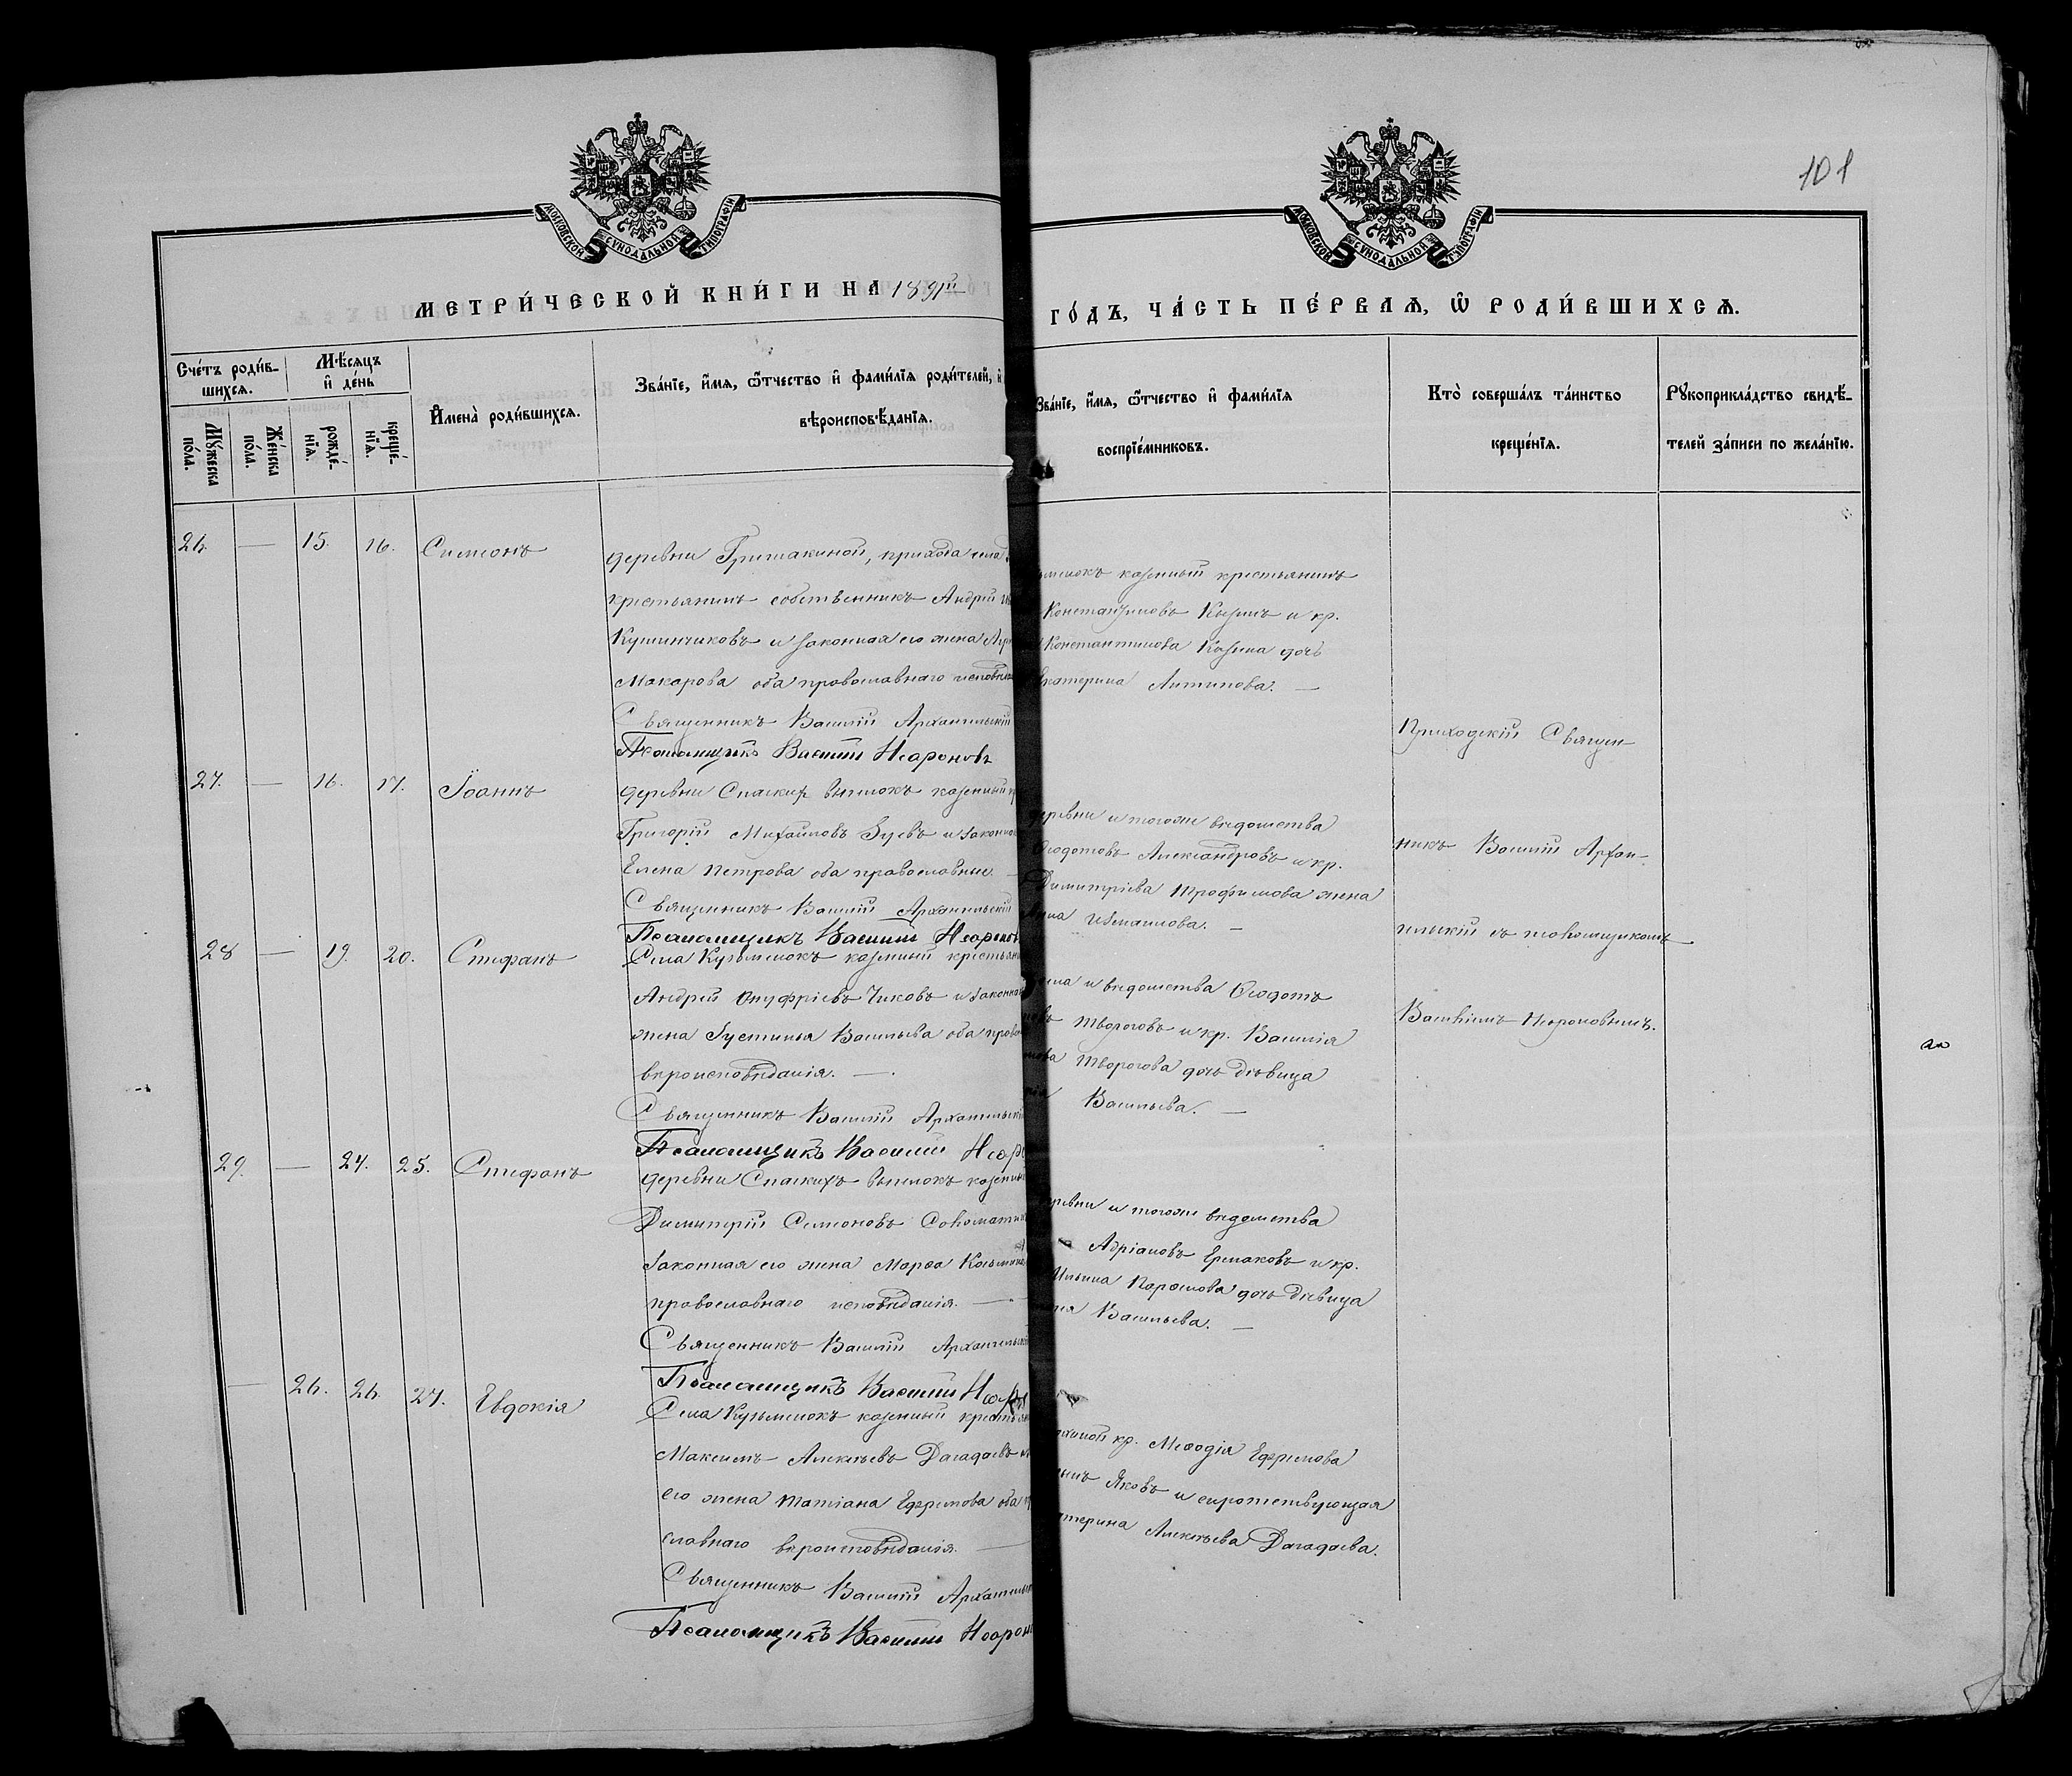 101
МОСКОВСКОЙ СУНОДАЛЬНОЙ ТИПОГРАФІИ
МОСКОВСКОЙ СУНОДАЛЬНОЙ ТИПОГРАФІИ
МЕТРИ́ЧЕСКОЙ КНИ́ГИ НА 1891й
ГО́ДЪ, ЧА́СТЬ ПЕ́РВАѦ, Ѡ РОДИ́ВШИХСѦ.
Сче́тъ роди́в-
шихсѧ.
Мѣ́сѧцъ
и де́нь
Мꙋ́жеска
по́ла.
Же́нска
по́ла.
рожде́-
нїѧ.
креще́-
нїѧ.
И҆мена̀ роди́вшихсѧ.
Зва́нїе, и҆́мѧ, ѻ҆́тчество и҆ фами́лїѧ роди́телей, и҆
вѣроисповѣ́данїѧ.
Зва́нїе, и҆́мѧ, ѻ҆́тчество и҆ фами́лїѧ
воспрїе́мниковъ.
Кто̀ соверша́лъ та́инство
креще́нїѧ.
Рꙋкоприкла́дство свидѣ́-
телей за́писи по жела́нїю.
26. — 15. 16. Симеонъ
деревни Гришакиной, прихода села
крестьянинъ собственникъ Андрей
Кушинчиковъ и законная его жена
Макарова оба православнаго исповед
Священникъ Василій Архангельскій
Псаломщикъ Василій Неароновъ
казенный крестьянинъ
Константиновъ Кызинъ и кр.
Константинова Казина дочь
Екатерина Антипова. —
27. — 16. 17. Іоаннъ
деревни Спаскихъ выселокъ казенный
Григорій Михайловъ Зуевъ и законная
Елена Петрова оба православные. —
Священникъ Василій Архангельскій
Псаломщикъ Василій Неаронов
деревни и тогоже ведомства
Ѳеодотовъ Александровъ и кр.
Димитріева Трофимова жена
Измаилова. —
28 — 19. 20. Стефанъ
Села Кузьминокъ казенный крестьян
Андрей Онуфріевъ Чиковъ и законная
жена Іустинья Васильева оба право
вероисповеданія. —
Священникъ Василій Архангельскій
Псаломщикъ Василій Неар
села и ведомства Ѳеодотъ
Творогова и кр. Василія
Творогова дочь девица
Васильева. —
29. — 24. 25. Стефанъ
деревни Спаскихъ выселокъ казенный
Димитрій Семеновъ
законная его жена Марѳа Козьмина
православнаго исповеданія. —
Священникъ Василій Архангельскій
Псаломщикъ Василій Неар
деревни и тогоже ведомства
Адріановъ Ермаковъ и кр.
Ильина дочь девица
Васильева. —
— 26. 26. 27. Евдокія
Села Кузьминокъ казенный крестьян
Максимъ Алексѣевъ Дагадаевъ
его жена Татіана Ефремова оба
славнаго вероисповеданія. —
Священникъ Василій Архангельск
Псаломщикъ Василій Неароно
кр. Меѳодія Ефремова
сынъ Яковъ и сиротствующая
Екатерина Алексѣева Дагадаева.
Приходскій Священ-
никъ Василій Архан-
гельскій съ псаломщикомъ
Василіемъ Неароновымъ.